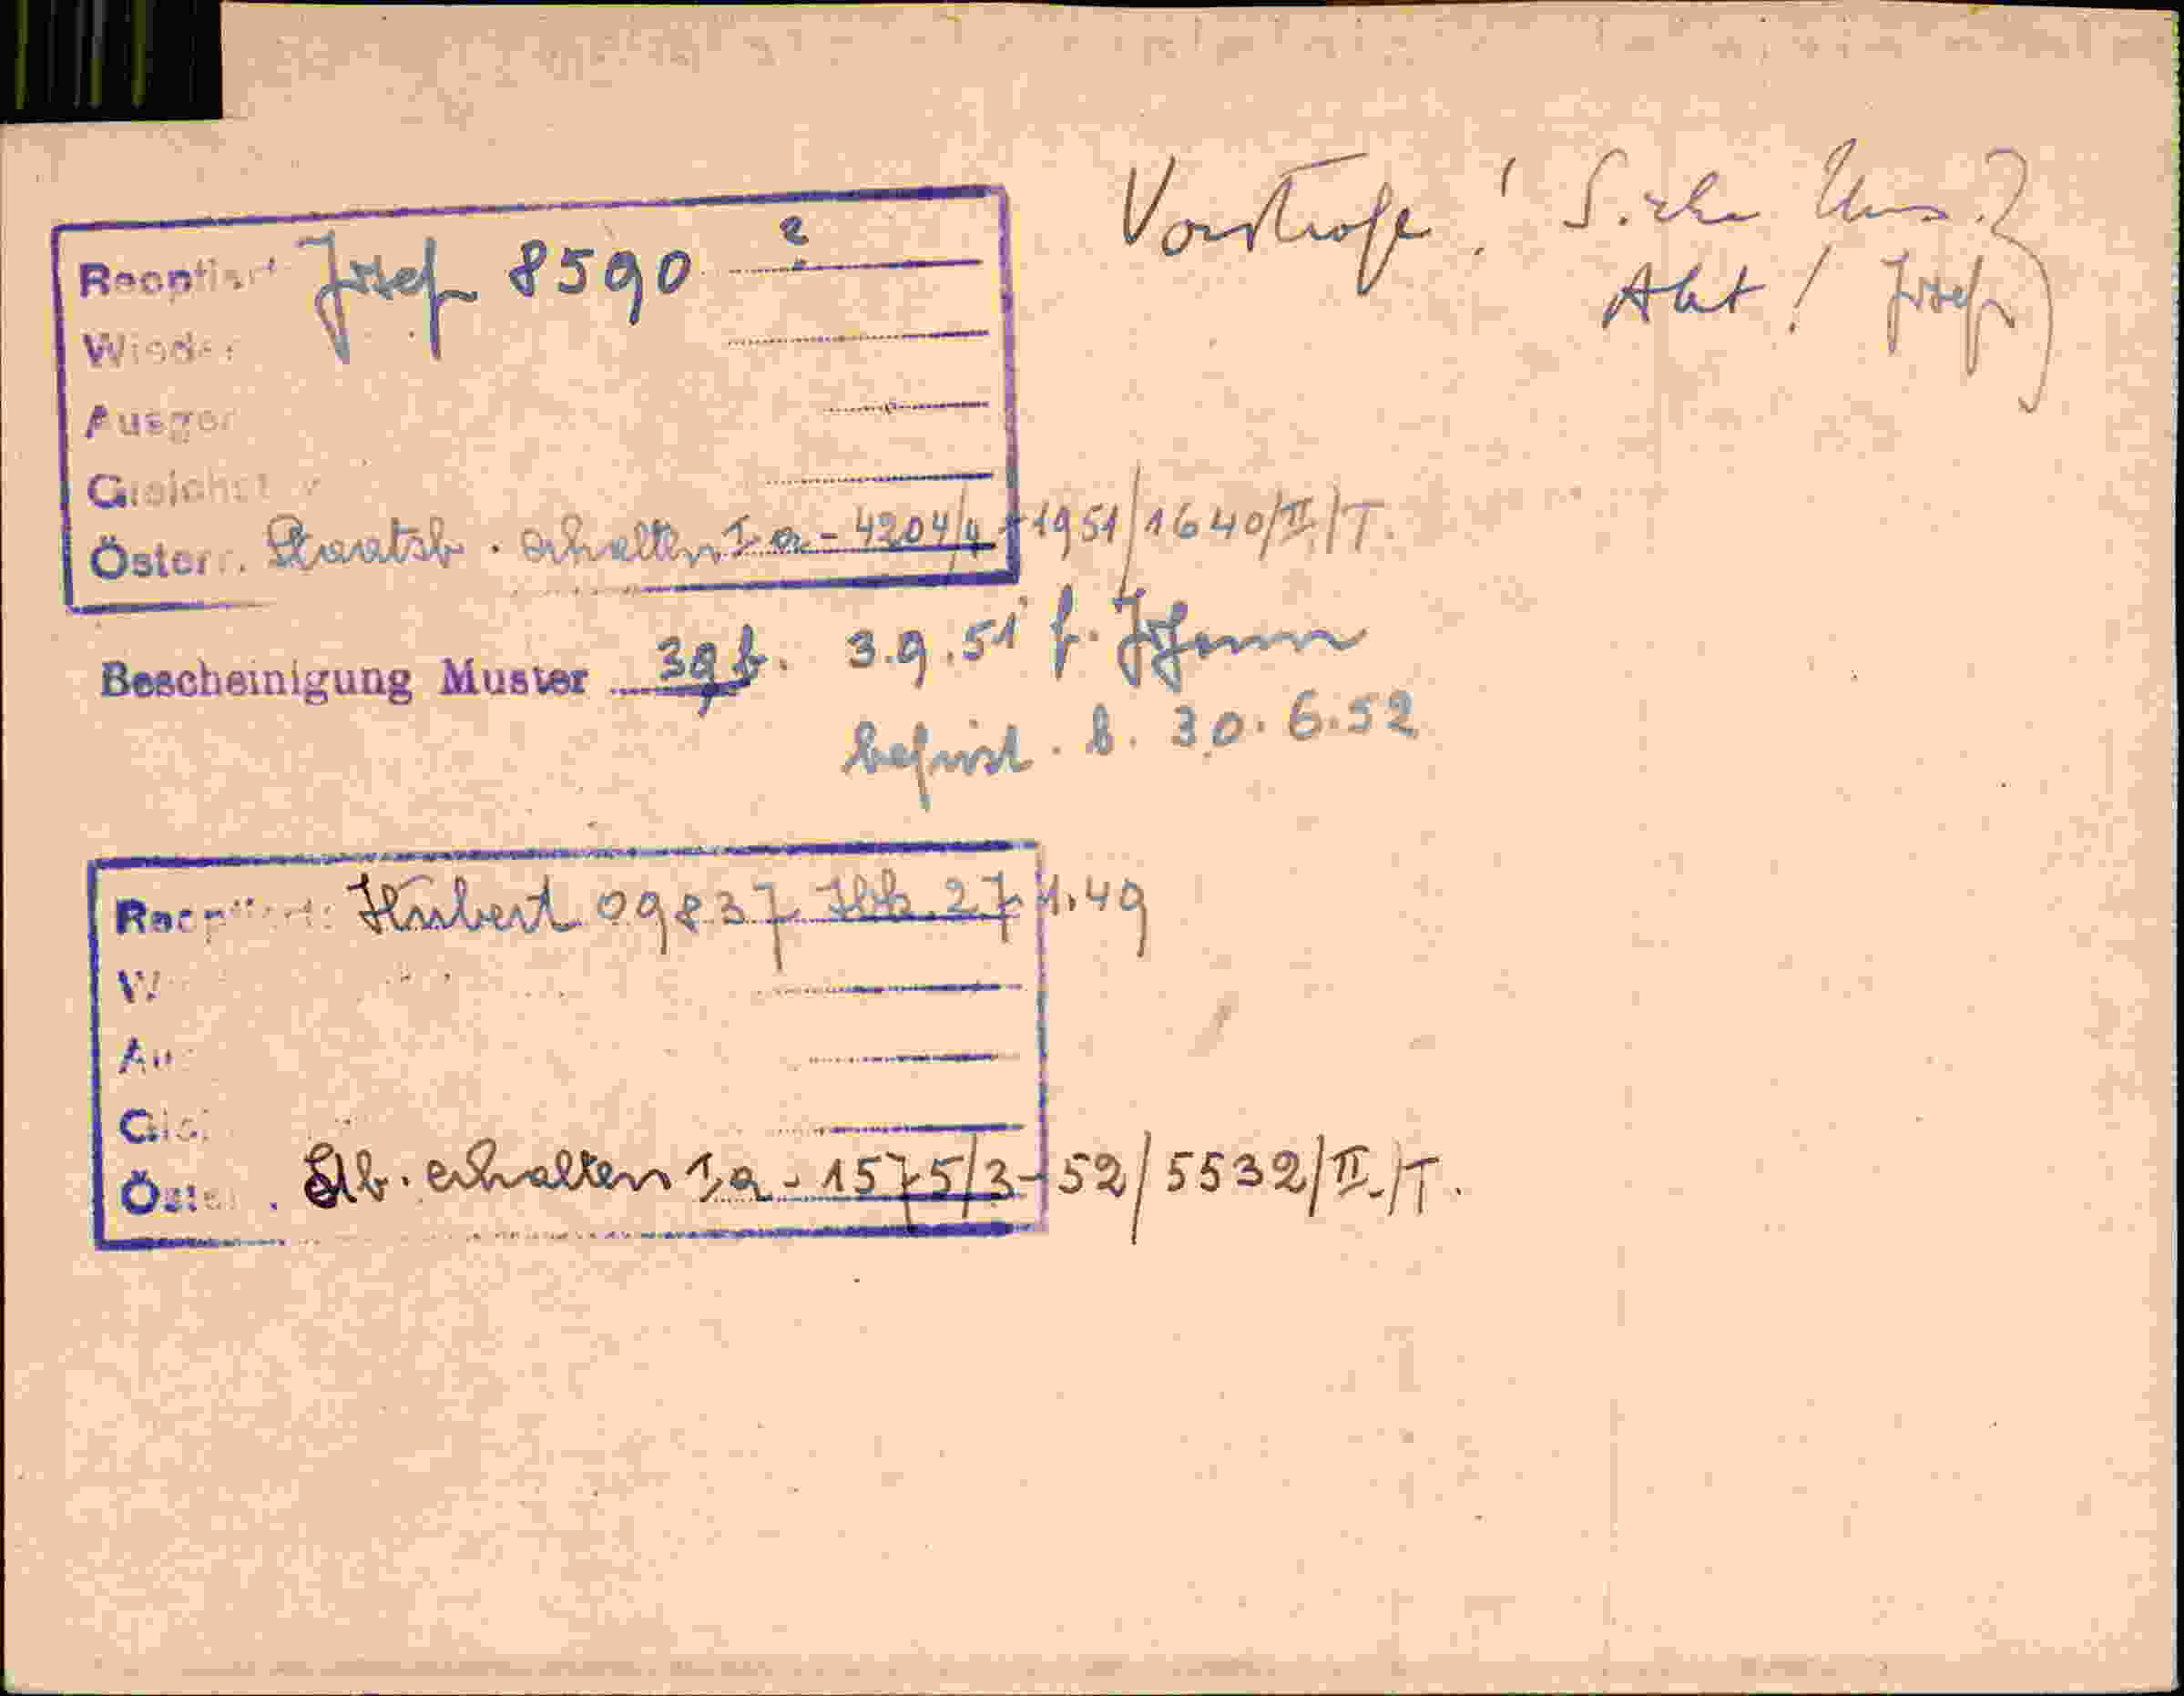 Vorstrafe! Siehe
Akt! Josef
Reoptiert Josef 8590 ?
Wieder
Ausger
Gleichst
Österr. Staatsb. erhalten Ia - 4204/4 - 1951/1640/II/T.
Bescheinigung Muster 39 b. 3.9.51 f. Johann
befrist. b. 30.6.52
Reoptiert: Hubert 09837 Ibk. 27.1.49
W
Au
Glei
Öster. Stb. erhalten Ia - 1575/3-52/5532/II/T.